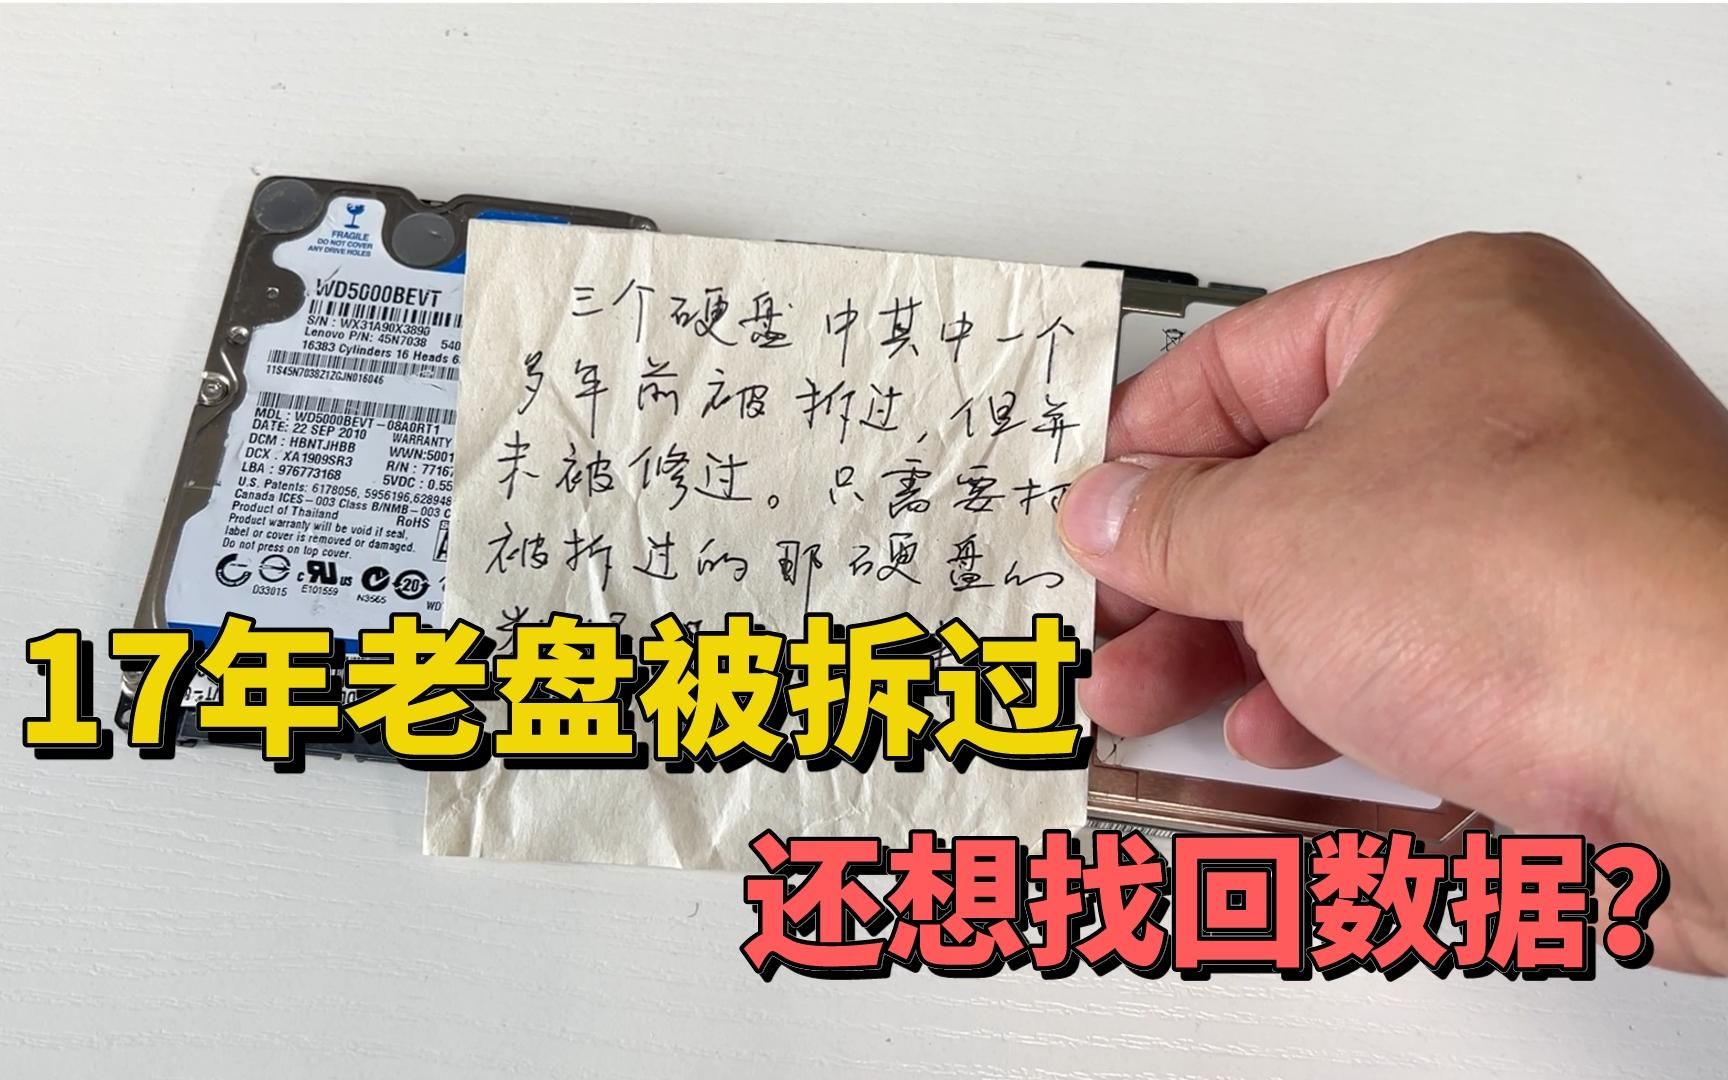 FRAGILE
DO NOT COVER
ANY DRIVE HOLES
WD5000BEVT
S/N : WX31A90X3890
Lenovo P/N: 45N7038 540
16383 Cylinders 16 Heads 6
11S45N7038Z1ZGJN016046
MDL : WD5000BEVT-08A0RT1
DATE: 22 SEP 2010 WARRANTY
DCM : HBNTJHBB WWN:5001
DCX : XA1909SR3 R/N : 7716
LBA : 976773168 5VDC : 0.55
U.S. Patents: 6178056, 5956196,628948
Canada ICES-003 Class B/NMB-003 C
Product of Thailand RoHS
Product warranty will be void if seal,
label or cover is removed or damaged.
Do not press on top cover.
D33015 E101559 N3565 20
WD
三个硬盘中其中一个
多年前被拆过,但并
未被修过。只需要
被拆过的那硬盘的
17年老盘被拆过
还想找回数据?